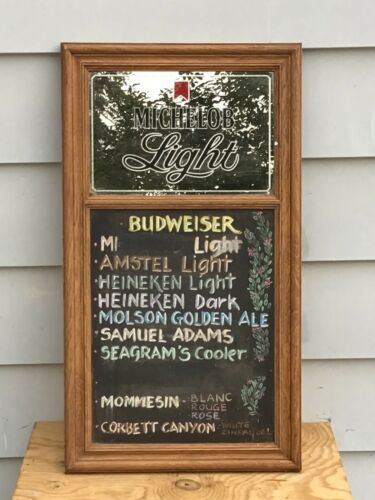 MICHELOB
Light
BUDWEISER
· MI Light
· AMSTEL Light
· HEINEKEN Light
· HEINEKEN Dark
· MOLSON GOLDEN ALE
· SAMUEL ADAMS
· SEAGRAM'S Cooler
· MOMMESIN - BLANC
ROUGE
ROSE
· CORBETT CANYON - WHITE
ZINFANDEL